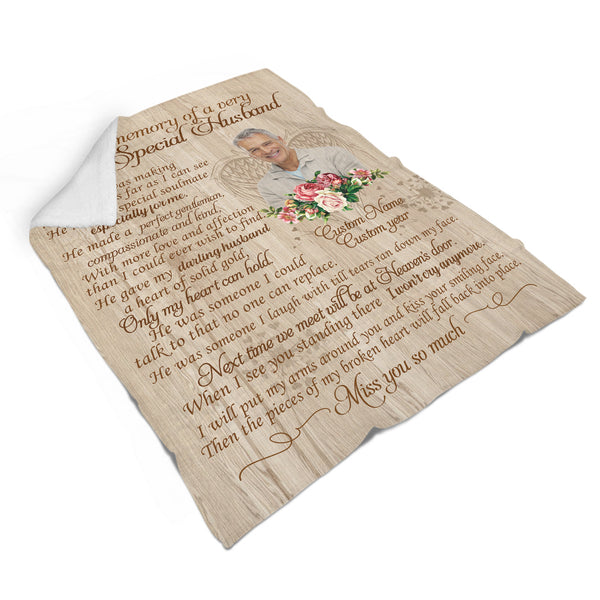 memory of a very
Special Husband
was making
as far as I can see
special soulmate
especially for me.
He made a perfect gentleman,
compassionate and kind,
With more love and affection
than I could ever wish to find.
He gave my darling husband
a heart of solid gold,
Only my heart can hold.
He was someone I could
talk to that no one can replace.
He was someone I laugh with till tears ran down my face.
Next time we meet will be at Heaven's door.
When I see you standing there I won't cry anymore.
I will put my arms around you and kiss your smiling face.
Then the pieces of my broken heart will fall back into place.
Miss you so much
Custom Name
Custom year